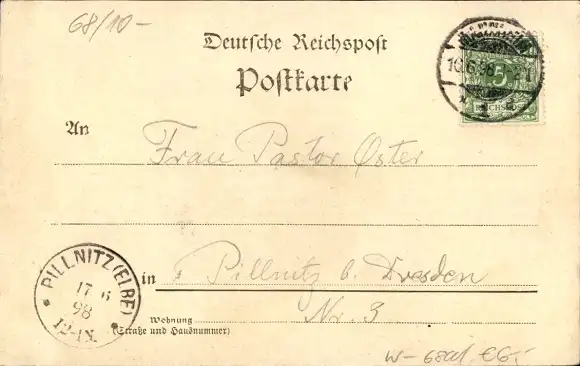 68/10-
Deutsche Reichspost
Postkarte
10.6.98
5
REICHSPOST
An
Frau Pastor Oster
in
Pillnitz b. Dresden
Nr. 3
Wohnung
(Straße und Hausnummer)
PILLNITZ (ELBE)
17 6
98
12-1N.
W-6801 €6,-